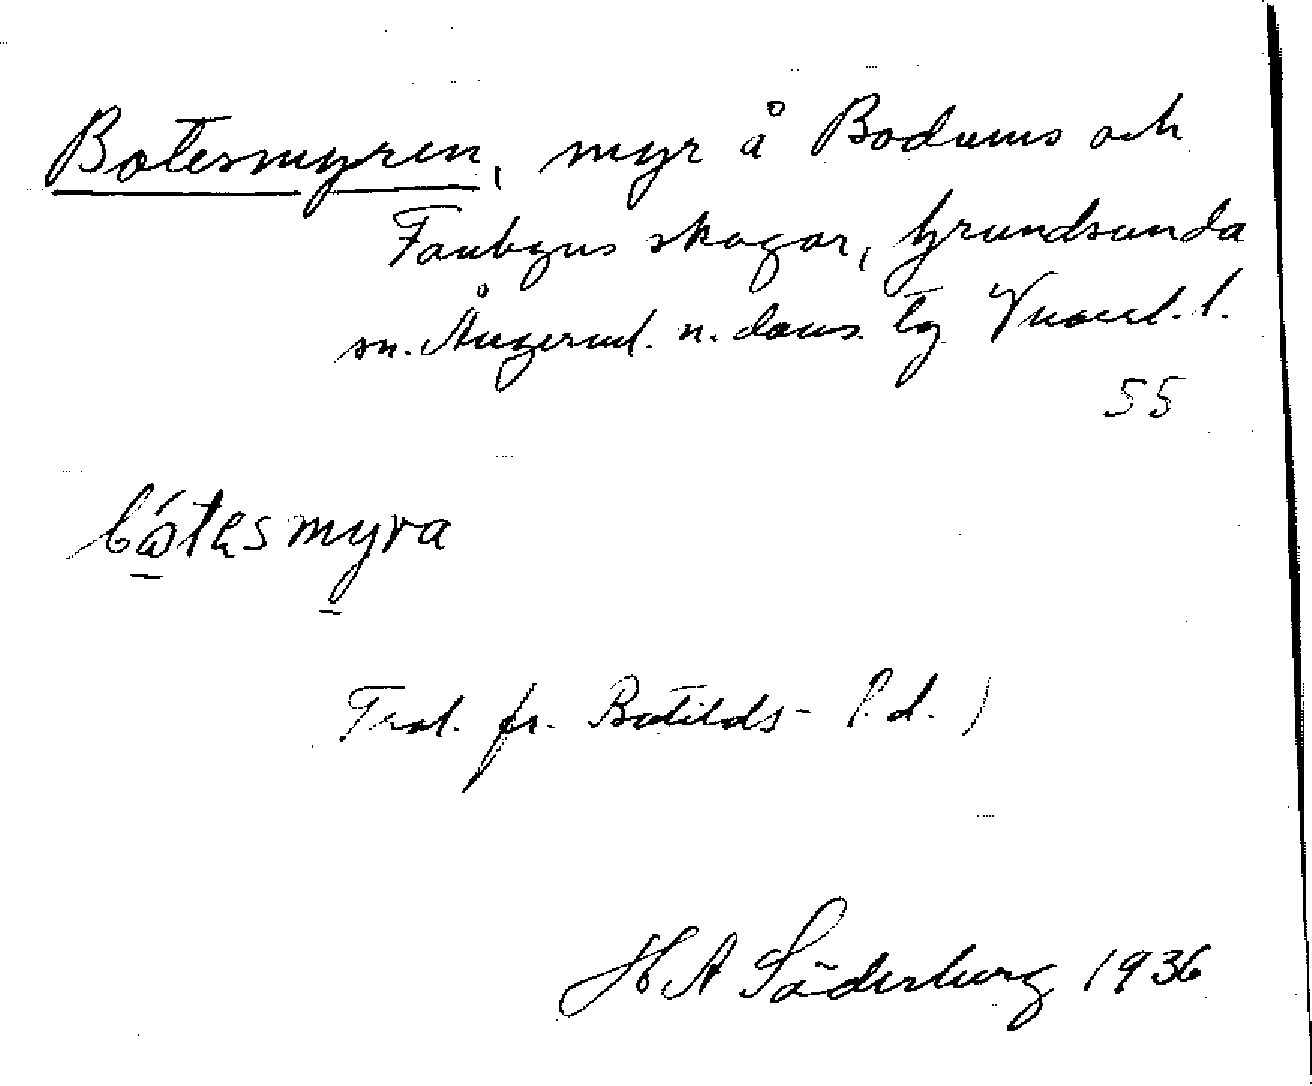 Botesmyren, myr å Bodums och
Fanbyns skogar, Grundsunda
sn. Ångerml. n. doms. tg
55
båtesmyra
Trol. fr. Botilds- (? d. )
H A Söderberg 1936